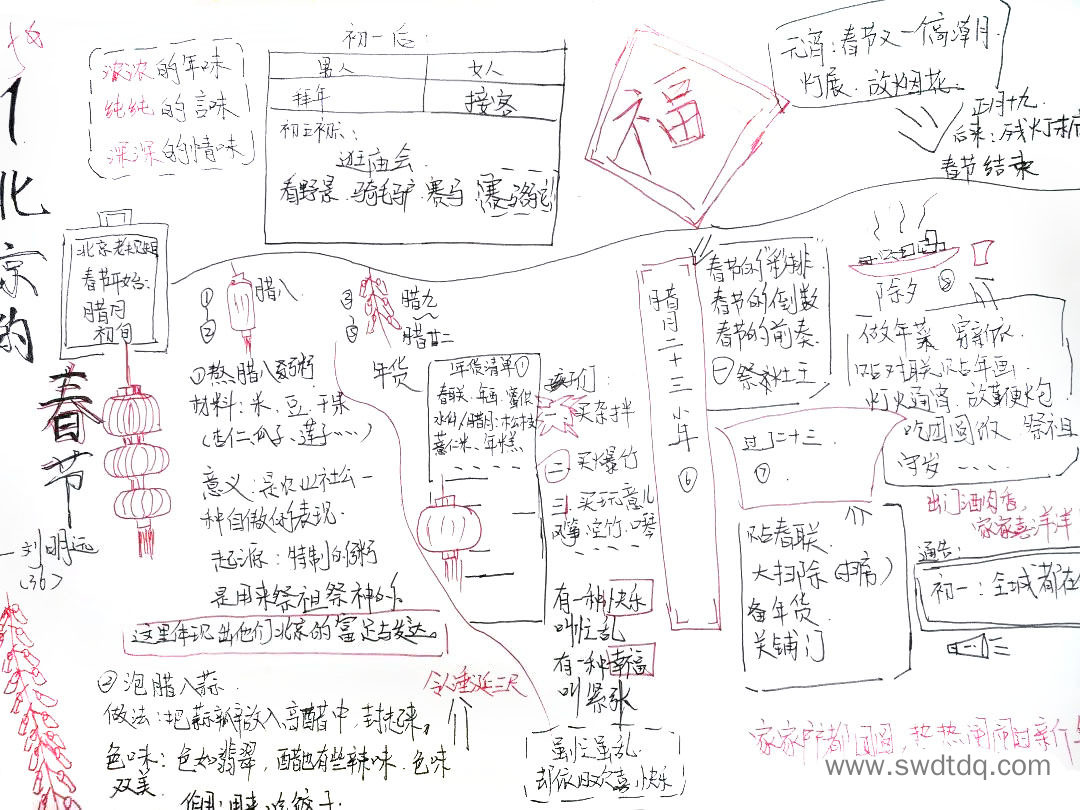 1 北京的
春节
刘明远
(36)
浓浓的年味
纯纯的言味
深深的情味
初一
男人 女人
拜年 接客
逛庙会
看野景、骑毛驴、赛马、赛骆驼
福
元宵:春节又一个高潮月
灯展、放烟花
正月十九
春节结束
北京老规矩
春节开始:
腊月
初旬
① 腊八
②
腊九
腊廿二
①熬腊八粥
材料:米、豆、干果
(杏仁、瓜子、莲子……)
意义:是农业社会一
种自傲的表现.
起源:特制的粥
是用来祭祖祭神的
这里体现出他们北京的富足与发达。
②泡腊八蒜
做法:把蒜瓣放入高醋中,封起来。
色味:色如翡翠,醋也有些辣味、色味
双美.
令人垂涎三尺
年货
年货清单①
春联、年画、蜜供
薏仁米、年糕
孩子们:
一 买杂拌
二 买爆竹
三 买玩意儿
风筝、空竹、口琴
有一种快乐
叫忙乱
有一种幸福
叫紧张
虽忙虽乱
快乐
腊月二十三小年 ⑥
春节的彩排
春节的倒数
春节的前奏
一 祭灶王
过了二十三
⑦
贴春联
大扫除
备年货
关铺门
除夕 ⑧
做年菜 穿新衣
贴对联 贴年画
灯火通宵、放鞭炮
吃团圆饭 祭祖
守岁 ……
出门酒肉香,
家家喜洋洋
通告:
初一:全城都在
www.swdtdq.com